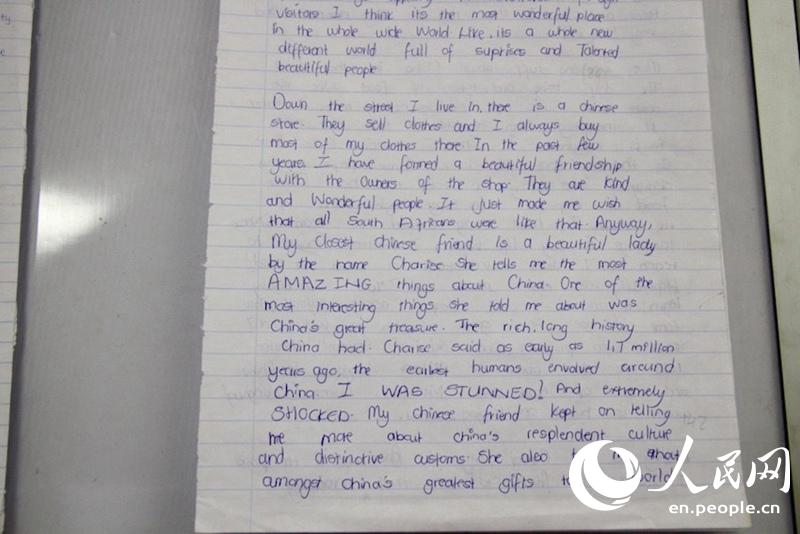 visitors I think its the most wonderful place
in the whole wide World Like, its a whole new
different world full of suprises and Talented
beautiful people
Down the street I live in, there is a chinese
store. They sell clothes and I always buy
most of my clothes there In the past few
years. I have formed a beautiful friendship
with the Owners of the shop. They are kind
and Wonderful people. It just made me wish
that all South Africans were like that. Anyway,
My closest chinese friend is a beautiful lady
by the name Charise She tells me the most
AMAZING things about China. One of the
most interesting things she told me about was
China's great treasure. The rich, long history
China had. Charise said as early as 1,7 million
years ago, the earliest humans envolved around
China. I WAS STUNNED! And extremely
SHOCKED. My chinese friend kept on telling
me more about china's resplendent culture
and distinctive customs. She also that
amongst China's greatest gifts world
人民网
en.people.cn